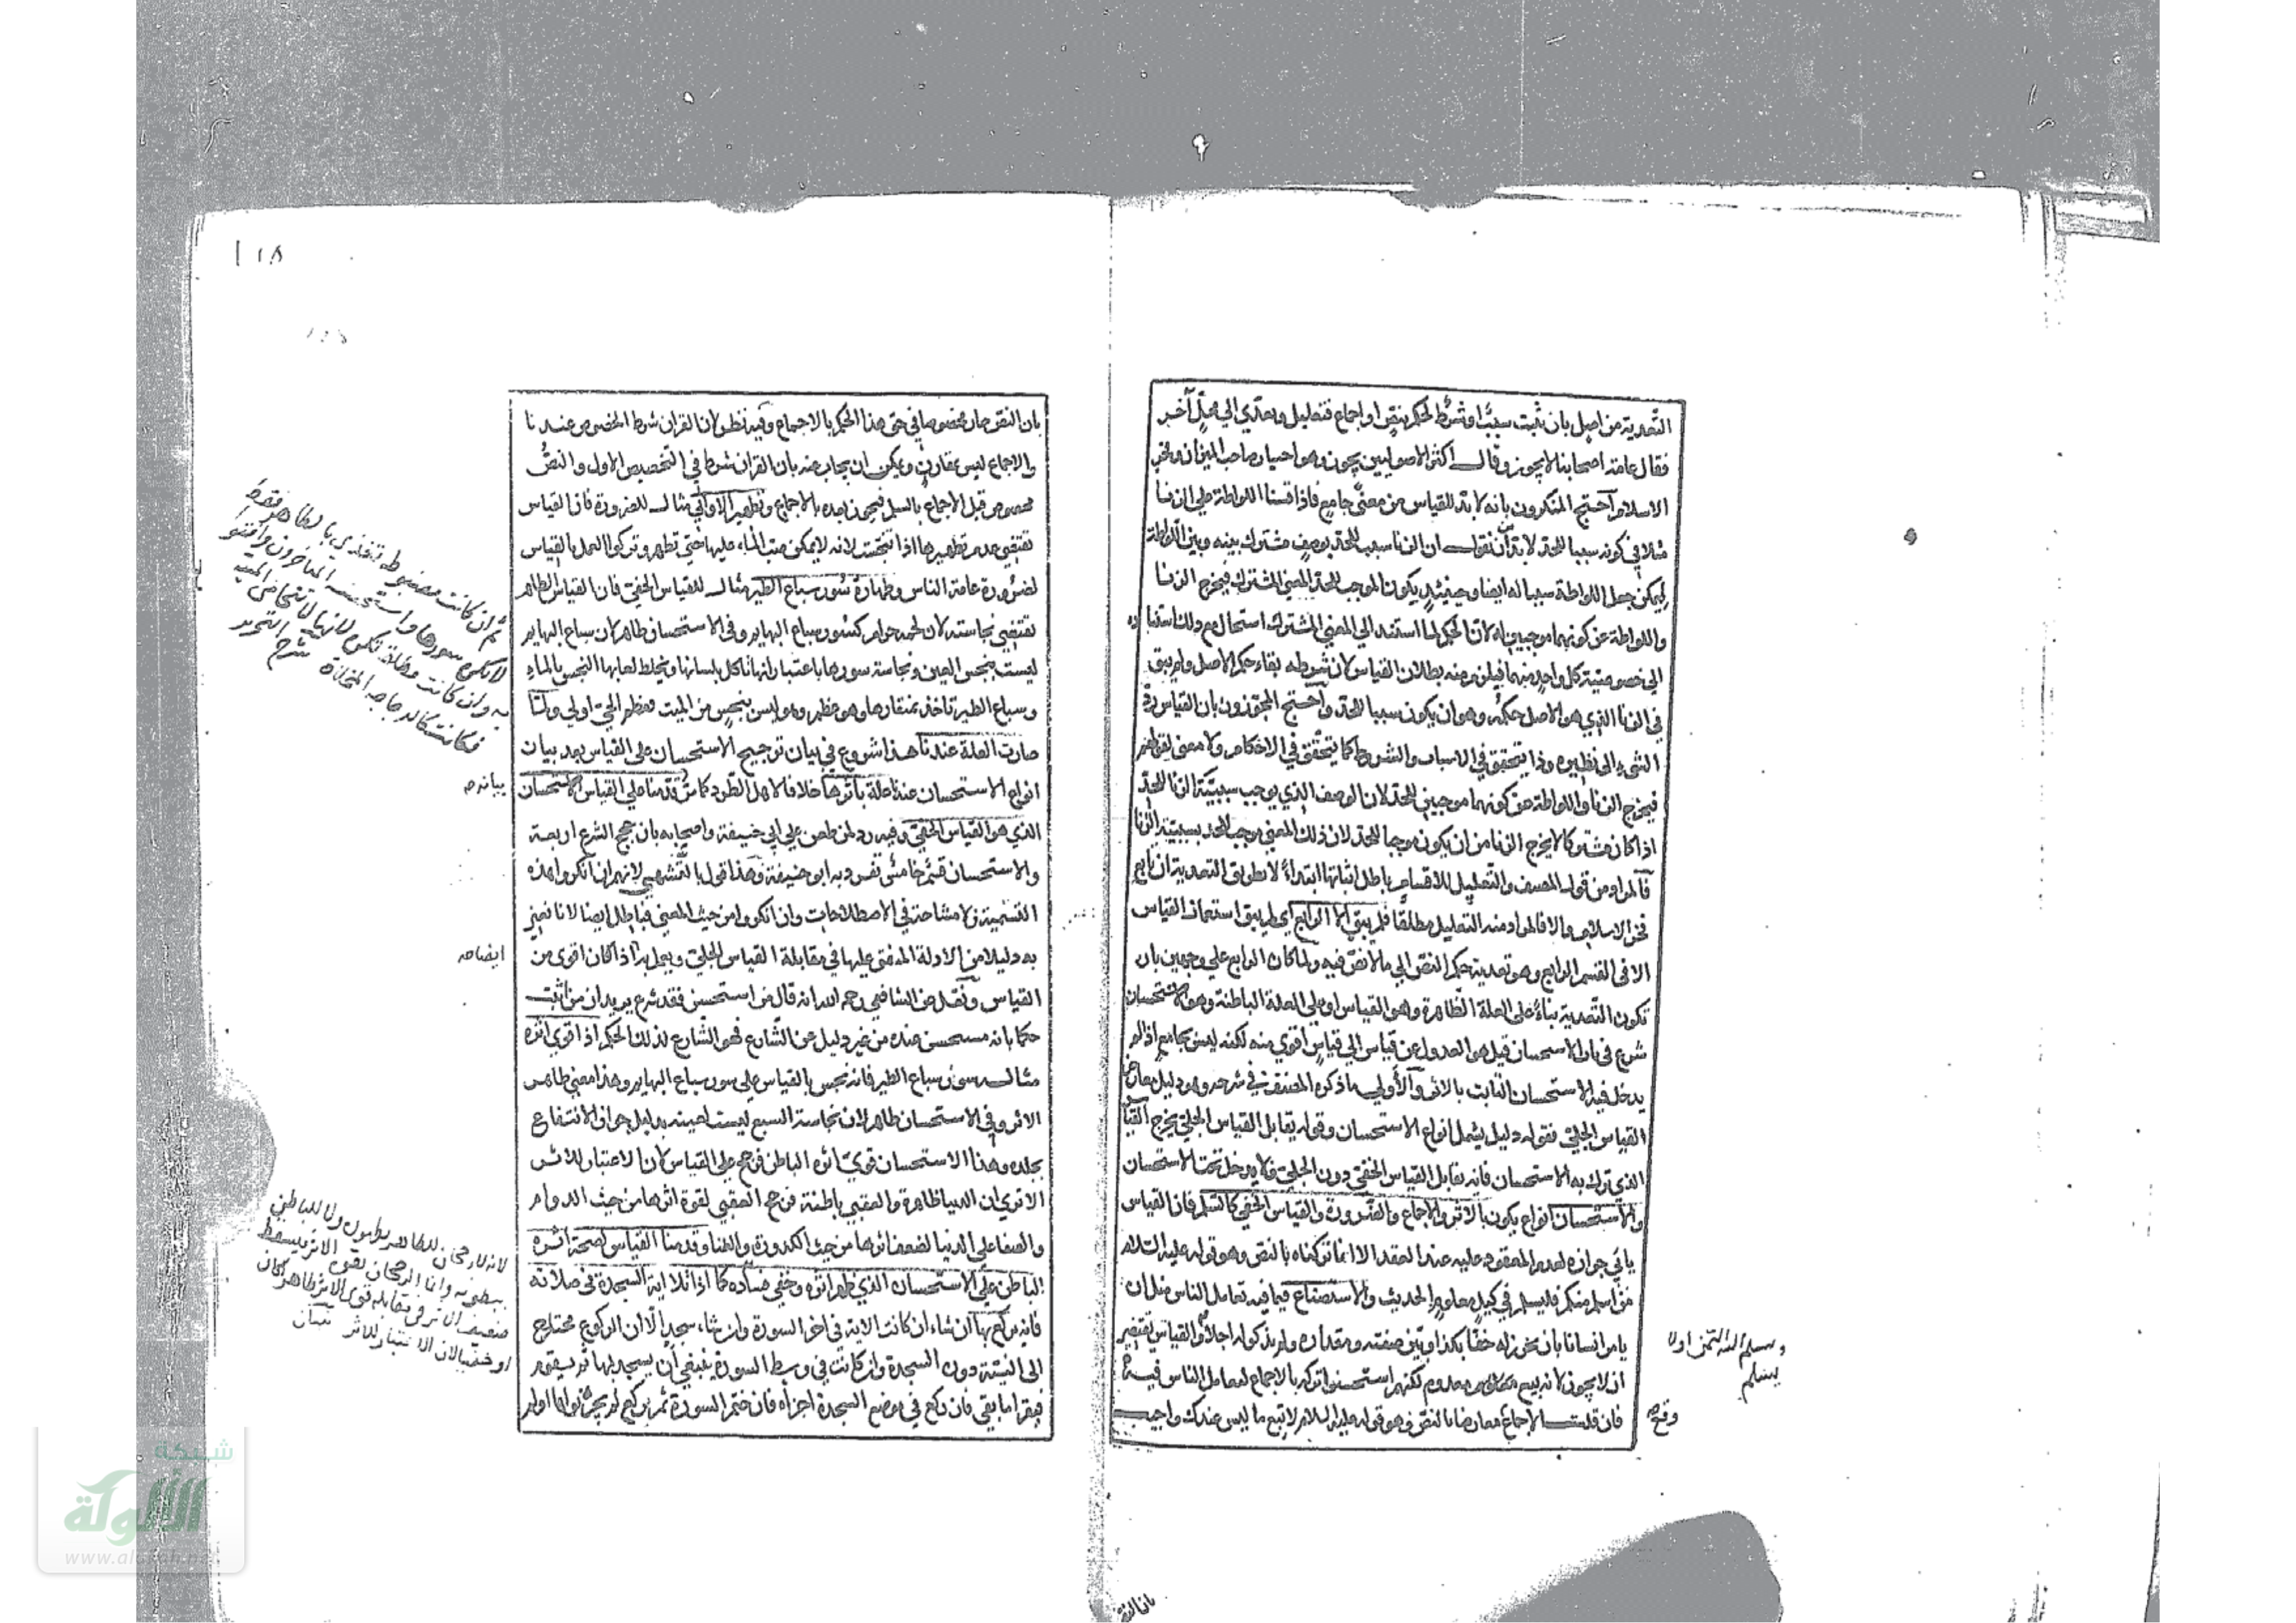 التعدية من اصل بان ثبت سببا او شرط الحكم بنص او اجماع فتعليل وتعدي الي محل آخر
فقال عامة اصحابنا لا يجوز وقال اكثر الاصوليين يجوز وهو اختيار صاحب الميزان وفخر
الاسلام احتج المنكرون بانه لا بد للقياس من معنى جامع فاذا قسنا اللواطة علي الزنا
مثلا في كونه سببا للحد لا بد ان نقول ان الزنا سبب للحد بوصف مشترك بينه وبين اللواطة
ليمكن جعل اللواطة سببا له ايضا وحينئذ يكون الموجب للحد المعنى المشترك فيخرج الزنا
واللواطة عن كونهما موجبين له لان الحكم لما استند الي المعنى المشترك استحال مع ذلك استنا
الي خصوصية كل واحد منهما فيلزم منه بطلان القياس لان شرطه بقاء حكم الاصل ولم يبق
في الزنا الذي هو الاصل حكمه وهو ان يكون سببا للحد واحتج المجوزون بان القياس رد
الشيء الى نظيره وذا يتحقق في الاسباب والشروط كما يتحقق في الاحكام ولا معنى لقولهم
فيخرج الزنا واللواطة عن كونهما موجبين للحد لان الوصف الذي يوجب سببية الزنا للحد
اذا كان مشتركا لا يخرج الزنا من ان يكون موجبا للحد لان ذلك المعنى يوجب الحد بسببية الزنا
فالمراد من قول المصنف والتعليل للاقسام باطل اثباتها ابتداء لا بطريق التعدية ان تابع
فخر الاسلام والا فالمراد منه التعليل مطلقا فلم يبق الا الرابع اي لم يبق استعمال القياس
الا في القسم الرابع وهو تعدية حكم النص الي ما لا نص فيه ولما كان الرابع علي وجهين بان
تكون التعدية بناء على العلة الظاهرة وهو القياس او على العلة الباطنة وهو الاستحسان
شرع في بيان الاستحسان قيل هو العدول عن قياس الي قياس اقوى منه لكنه ليس بجامع اذ لم
يدخل فيه الاستحسان الثابت بالاثر والاولي ما ذكره المصنف في شرحه وهو دليل يعارض
القياس الجلي فقوله دليل يشمل انواع الاستحسان وقوله يقابل القياس الجلي يخرج القياس
الذي ترك به الاستحسان فانه يقابل القياس الخفي دون الجلي فلا يدخل تحت الاستحسان
والاستحسان انواع يكون بالاثر والاجماع والضرورة والقياس الخفي كالسلم فان القياس
يابي جوازه لعدم المعقود عليه عند العقد الا انا تركناه بالنص وهو قوله عليه السلام
من اسلم منكم فليسلم في كيل معلوم الحديث والاستصناع فيما فيه تعامل الناس مثل ان
يامر انسانا بان يخرز له خفا بكذا وبين صفته ومقداره ولم يذكر له اجلا والقياس يقتضي
ان لا يجوز لانه بيع معدوم لكنهم استحسنوا تركه بالاجماع لتعامل الناس فيه
فان قلت الاجماع معارضا بالنص وهو قوله عليه السلام لا تبع ما ليس عندك واجيب
وقع
بان النص
بان النص صار مخصوصا في حق هذا الحكم بالاجماع وفيه نظر لان القران شرط المخصوص عندنا
والاجماع ليس بمقارن ويمكن ان يجاب عنه بان القران شرط في التخصيص الاول والنص
مخصوص قبل الاجماع بالسلم فيجوز بعده بالاجماع وتطهير الاواني مثال للضرورة فان القياس
يقتضي عدم تطهيرها اذا تنجست لانه لا يمكن صب الماء عليها حتى تطهر وتركوا العمل بالقياس
لضرورة عامة الناس وطهارة سور سباع الطير مثال للقياس الخفي فان القياس الظاهر
يقتضي نجاسته لان لحمه حرام كسور سباع البهايم وفي الاستحسان طاهر لان سباع البهايم
ليست بنجس العين ونجاسة سورها باعتبار انها تاكل بلسانها ويختلط لعابها النجس بالماء
وسباع الطير تاخذ بمنقارها وهو عظم وهو ليس بنجس من الميت فعظم الحي اولي ولما
صارت العلة عندنا هذا شروع في بيان ترجيح الاستحسان على القياس بعد بيان
انواع الاستحسان عندنا علة باثرها خلافا لاهل الطرد كما مر قدمنا علي القياس الاستحسان
الذي هو القياس الخفي وفيه رد لمن طعن علي ابي حنيفة واصحابه بان حجج الشرع اربعة
والاستحسان قسم خامس تفرد به ابو حنيفة وهذا قول بالتشهي لانهم ان انكروا هذه
التسمية فلا مشاحة في الاصطلاحات وان انكروا من حيث المعنى فباطل ايضا لانا نعني
به دليلا من الادلة المتفق عليها في مقابلة القياس الجلي ويعمل به اذا كان اقوى من
القياس ونقل عن الشافعي رحمه الله انه قال من استحسن فقد شرع يريد ان من اثبت
حكما بانه مستحسن عنده من غير دليل عن الشارع فهو الشارع لذلك الحكم اذا قوي اثره
مثاله سور سباع الطير فانه نجس بالقياس علي سور سباع البهايم وهذا معنى ظاهر
الاثر وفي الاستحسان طاهر لان نجاسة السبع ليست لعينه بدليل جواز الانتفاع
بجلده وهذا الاستحسان قوي اثره الباطن فرجح علي القياس لان الاعتبار للاثر
الا تري ان الدنيا ظاهرة والعقبي باطنة فرجح العقبي لقوة اثرها من حيث الدوام
والصفا علي الدنيا لضعف اثرها من حيث الكدورة والفنا وقدمنا القياس لصحة اثره
الباطن علي الاستحسان الذي ظهر اثره وخفي فساده كما اذا تلا اية السجدة في صلاته
فانه يركع بها ان شاء ان كانت الاية في اخر السورة وان شاء سجد الا ان الركوع محتاج
الى النية دون السجدة وان كانت في وسط السورة ينبغي ان يسجد لها ثم يقوم
فيقرا ما بقي فان ركع في موضع السجدة اجزاه فان ختم السورة ثم ركع لم يجز نواها او لم
ثم ان كانت مضبوطة تغتذي
لا يكره سورها
بيانه
ايضاحه
لانه لا رجحان للظاهر بظهوره ولا للباطن
ببطونه وانما الرجحان بقوة الاثر فيسقط
ضعيف الاثر في مقابلة قوي الاثر ظاهرا كان
او خفيا لان الاعتبار للاثر
شبكة
الألوكة